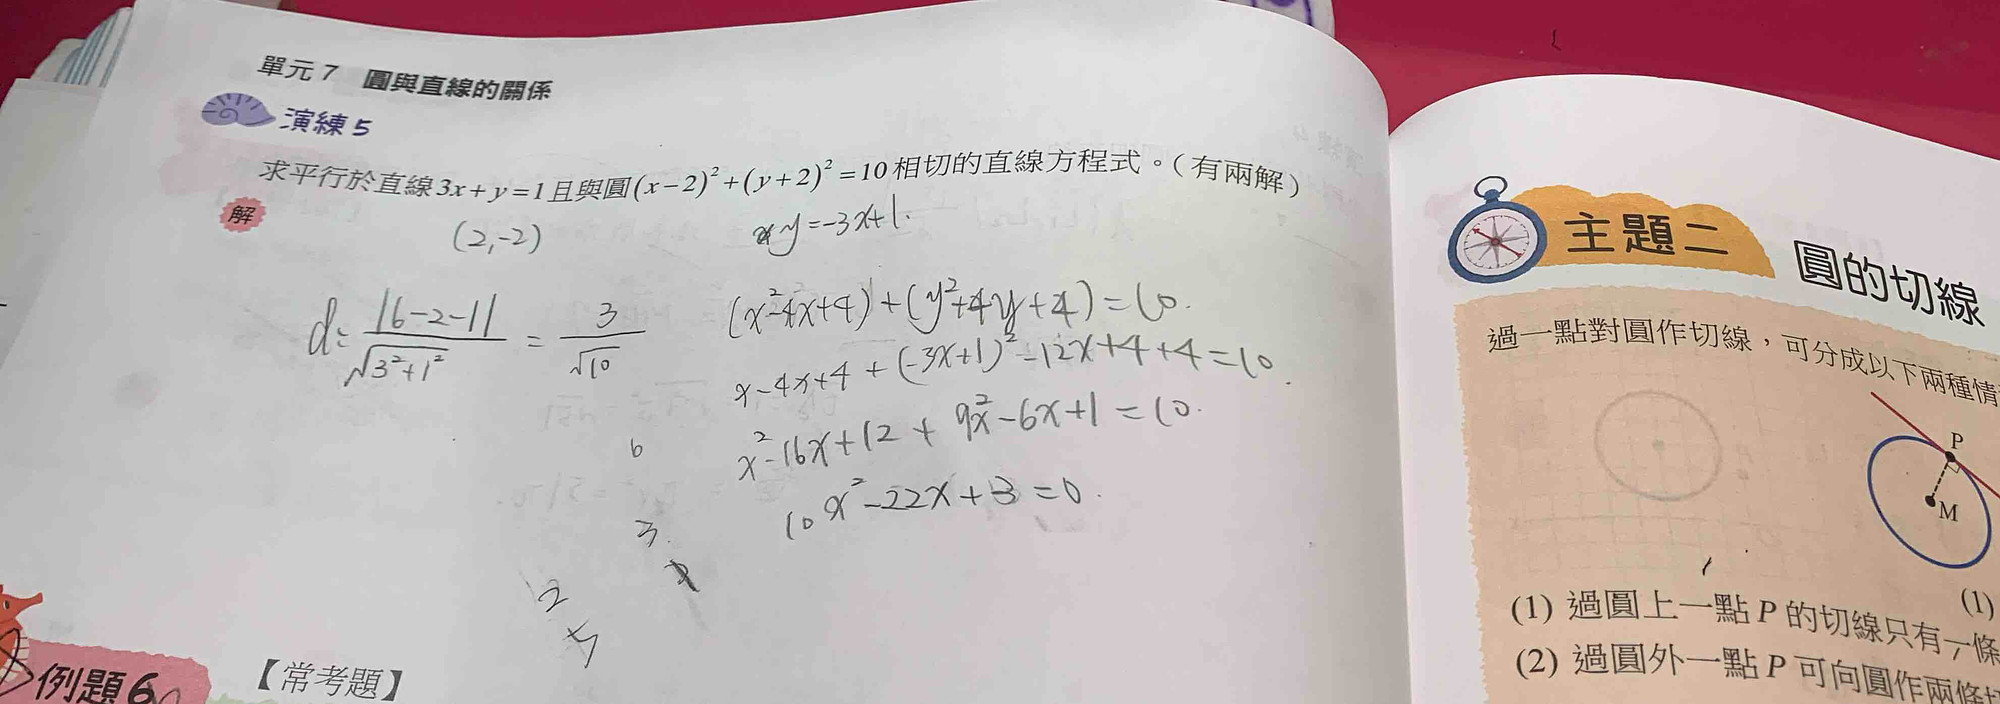 單元 7 圓與直線的關係
演練 5
求平行於直線 3x+y=1 且與圓 (x-2)²+(y+2)²=10 相切的直線方程式。(有兩解)
解
(2,-2)
y=-3x+1.
d= |6-2-1| / √3²+1² = 3 / √10
(x²-4x+4)+(y²+4y+4)=10.
x-4x+4+(-3x+1)²-12x+4+4=10.
x²-16x+12+9x²-6x+1=10.
10x²-22x+3=0.
6
3.
2
例題 6
【常考題】
主題二 圓的切線
過一點對圓作切線,可分成以下兩種情
P
M
(1)
(1) 過圓上一點 P 的切線只有一條
(2) 過圓外一點 P 可向圓作兩條切